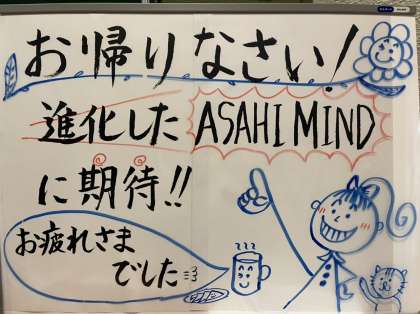 お帰りなさい!
進化した ASAHI MIND
に期待!!
お疲れさま
でした